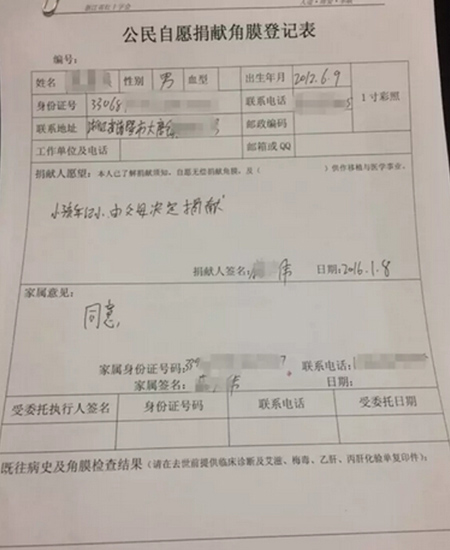 浙江省红十字会
人道·博爱·奉献
公民自愿捐献角膜登记表
编号:
姓名 性别 男 血型 出生年月 2012.6.9
身份证号 33068 联系电话 1寸彩照
联系地址 浙江省诸暨市大唐 3 邮政编码
工作单位及电话 邮箱或QQ
捐献人愿望:本人已了解捐献须知,自愿无偿捐献角膜,及( )供作移植与医学事业。
小孩年纪小,由父母决定捐献
捐献人签名: 伟 日期:2016.1.8
家属意见:
同意
家属身份证号码:339 7 联系电话:
家属签名: 伟 日期:
受委托执行人签名 身份证号码 联系电话 受委托日期
既往病史及角膜检查结果(请在去世前提供临床诊断及艾滋、梅毒、乙肝、丙肝化验单复印件):